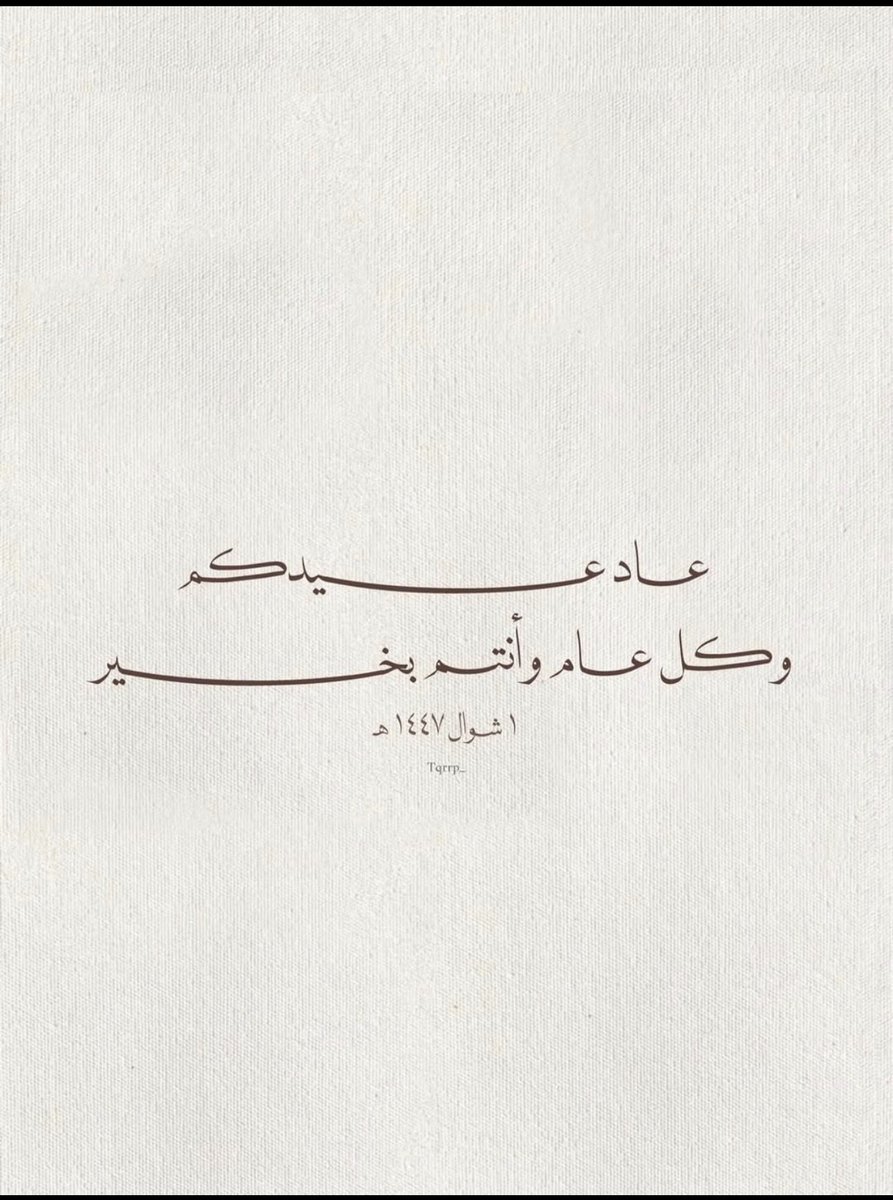 عاد عيدكم
وكل عام وأنتم بخير
١ شوال ١٤٤٧ هـ
Tqrrp_